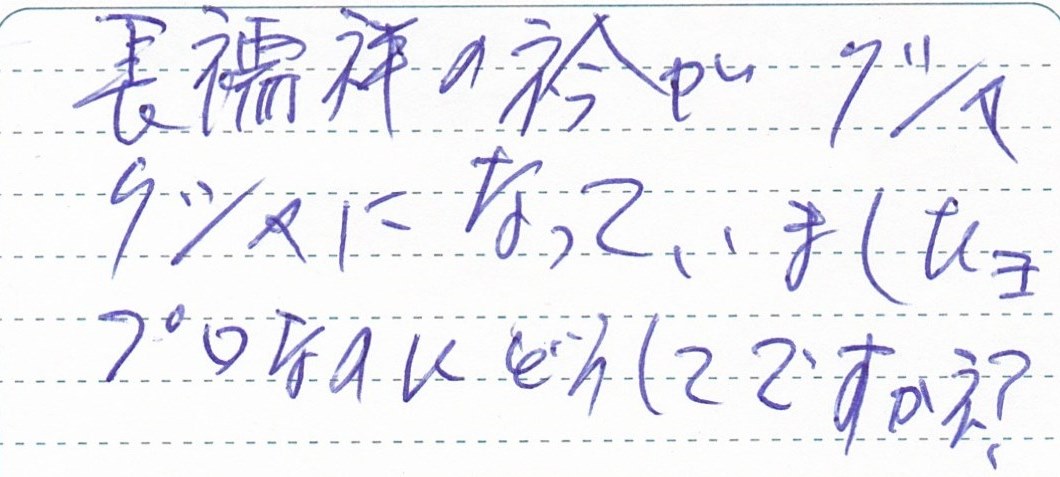 長襦袢の衿が グシャ
グシャに なっていましたョ
プロなのに どうしてですかネ?